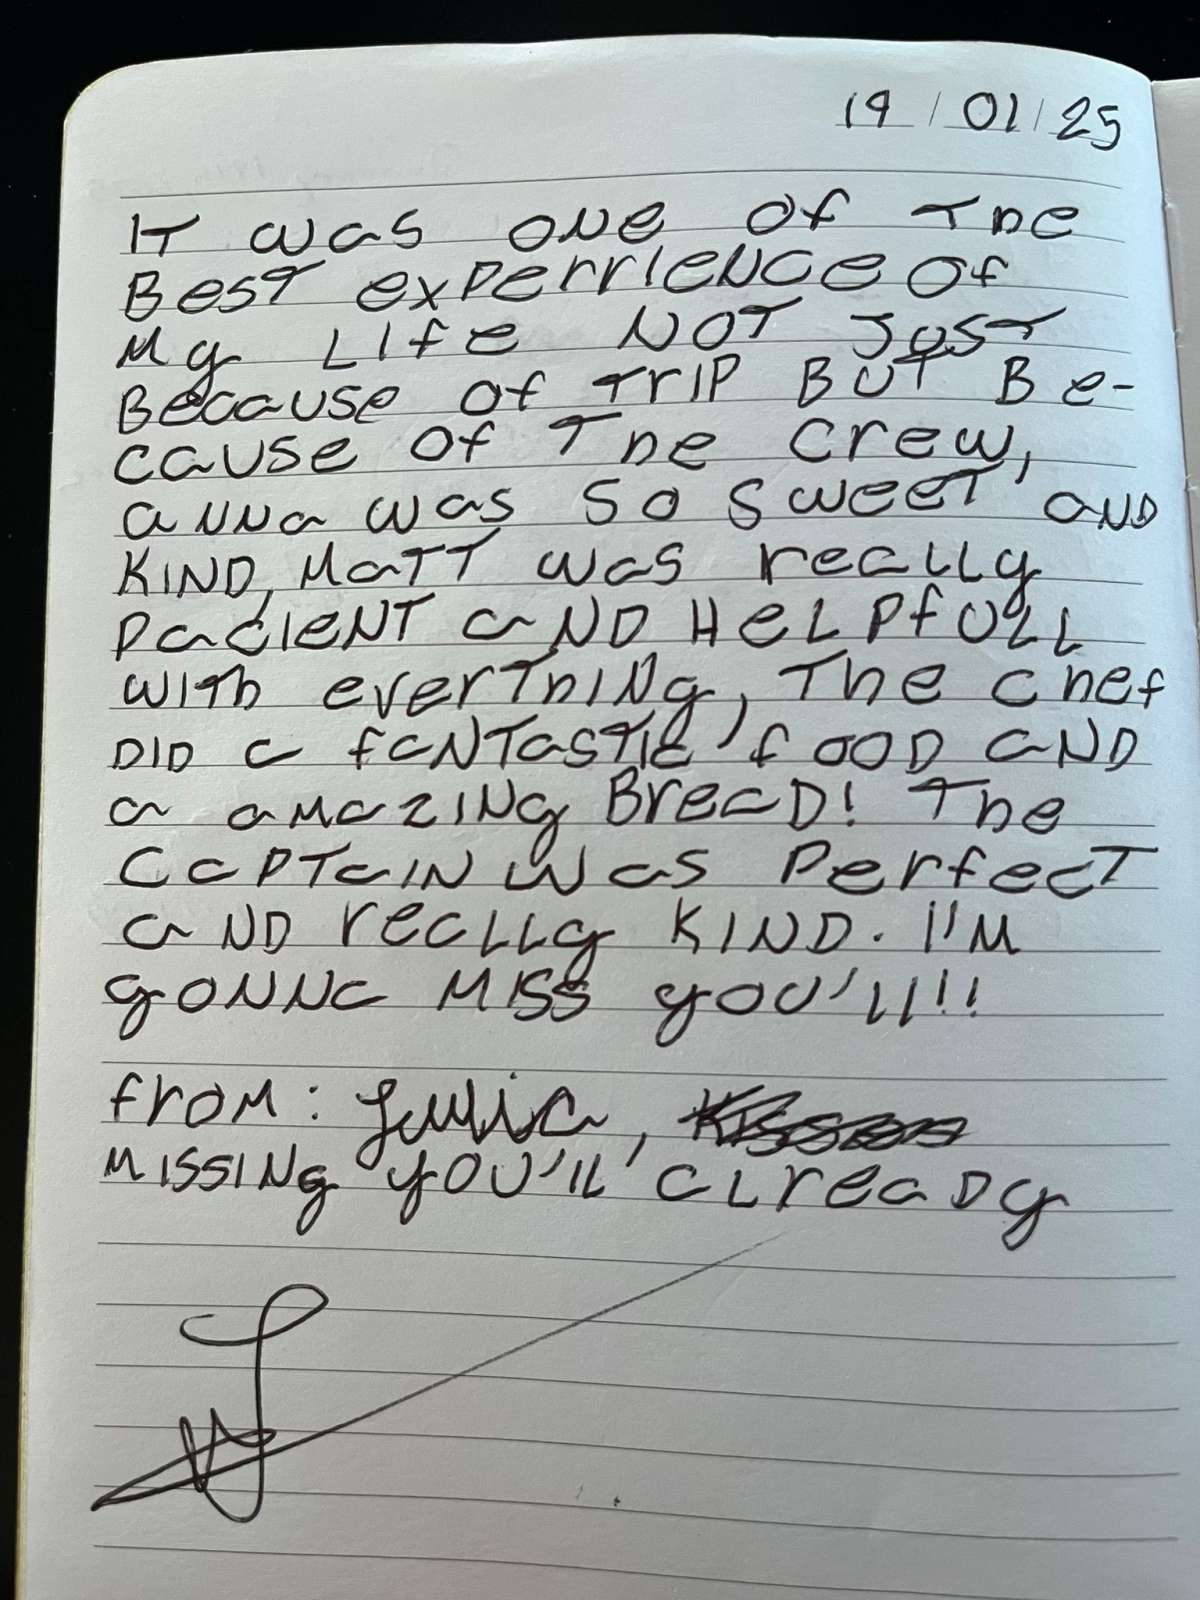 19/01/25
IT was one of The
Best experrience of
My Life NOT Just
Because of Trip But Be-
cause of The crew,
anna was so sweet and
kind, Matt was really
pacient and Helpfull
with everthing, The chef
did a fantastic food and
a amazing Bread! The
Captain was perfect
and really kind. I'm
gonna miss you'll!!
from: Julia,
missing you'll already